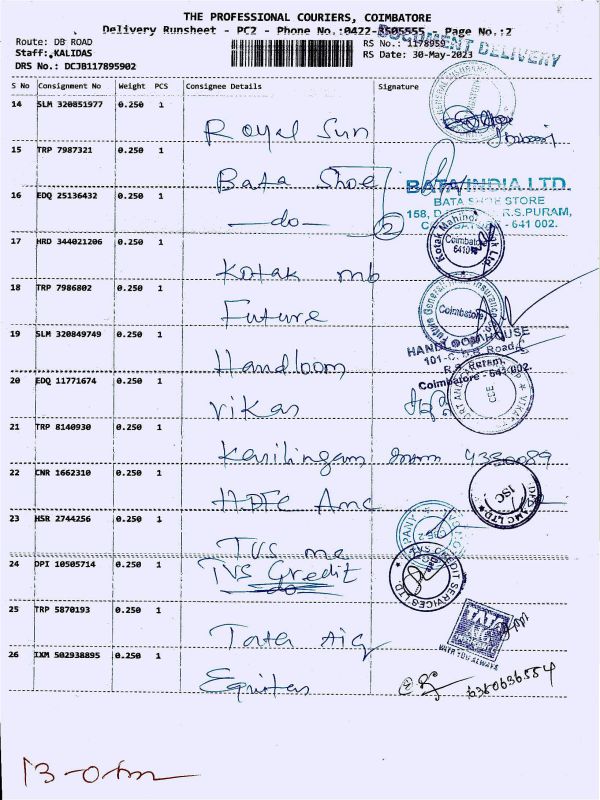 THE PROFESSIONAL COURIERS, COIMBATORE
Delivery Runsheet - PC2 - Phone No.:0422-3505555 - Page No.:2
DOCUMENT DELIVERY
Route: DB ROAD
RS No.: 1178959
Staff: KALIDAS
RS Date: 30-May-2023
DRS No.: DCJB117895902
S No Consignment No Weight PCS Consignee Details Signature
14 SLM 320851977 0.250 1
Royal Sun
15 TRP 7987321 0.250 1
Bata Shoe
BATA INDIA LTD.
BATA SHOE STORE
16 EDQ 25136432 0.250 1
158, R.S.PURAM,
- 641 002.
-do-
2
17 HRD 344021206 0.250 1
Kotak Mahindra Ltd
Coimbatore
Kotak mb
18 TRP 7986802 0.250 1
Future Generali Insurance
Coimbatore
Future
19 SLM 320849749 0.250 1
HANDLOOM HOUSE
101-C, Road,
R.S. Puram,
Coimbatore - 641 002.
Handloom
20 EDQ 11771674 0.250 1
VIKAS
CCE
Vikas
21 TRP 8140930 0.250 1
22 CNR 1662310 0.250 1
ISC
AMC LTD
HDFC Amc
23 HSR 2744256 0.250 1
TVS
24 DPI 10505714 0.250 1
TVS Credit
do
TVS CREDIT SERVICES LTD.
25 TRP 5870193 0.250 1
TATA
WITH YOU ALWAYS
Tata Aig
26 IXM 502938895 0.250 1
Equitas
6380636554